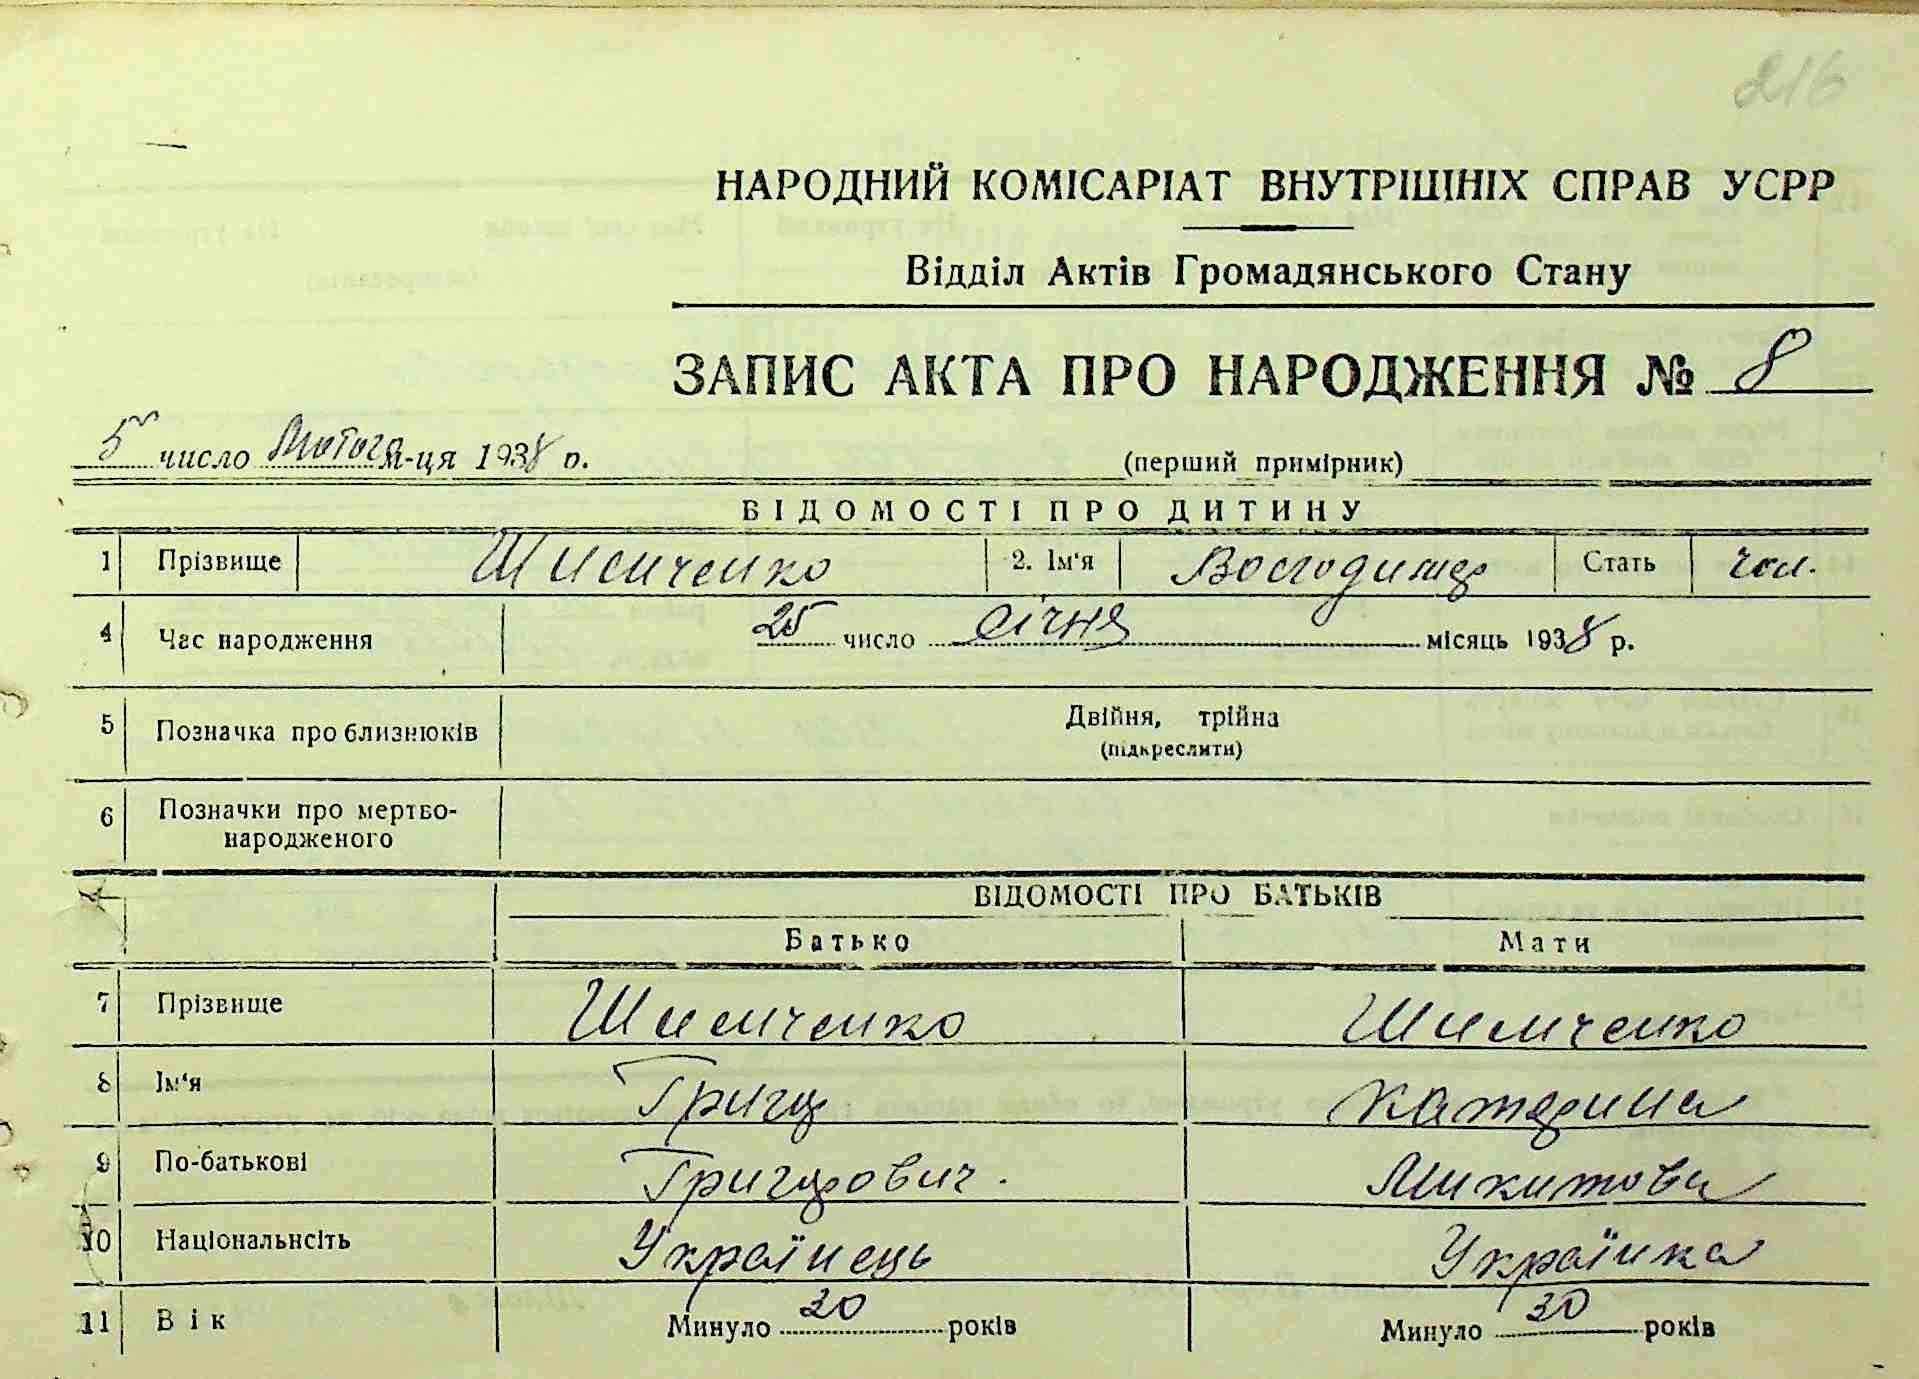 216
НАРОДНИЙ КОМІСАРІАТ ВНУТРІШНІХ СПРАВ УСРР
Відділ Актів Громадянського Стану
ЗАПИС АКТА ПРО НАРОДЖЕННЯ № 8
5 число Лютого м-ця 1938 р.
(перший примірник)
ВІДОМОСТІ ПРО ДИТИНУ
1 Прізвище Шимченко 2. Ім'я Володимир Стать чол.
4 Час народження 25 число січня місяць 1938 р.
5 Позначка про близнюків Двійня, трійна
(підкреслити)
6 Позначки про мертво-
народженого
ВІДОМОСТІ ПРО БАТЬКІВ
Батько Мати
7 Прізвище Шимченко Шимченко
8 Ім'я Григор Катерина
9 По-батькові Григорович. Микитовн
10 Національнсіть Українець Українка
11 Вік Минуло років Минуло 30 років